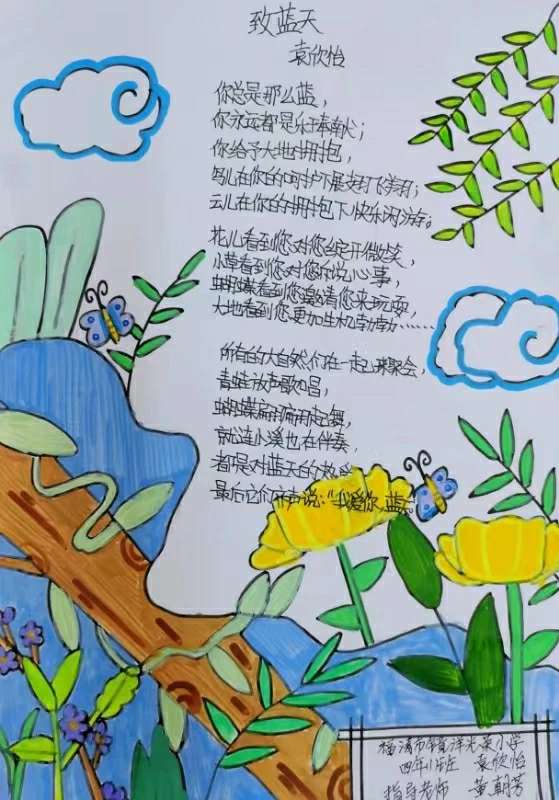 致蓝天
袁欣怡
你总是那么蓝，
你永远都是乐于奉献；
你给予大地拥抱，
鸟儿在你的呵护下展翅飞翔；
云儿在你的拥抱下快乐闲游。
花儿看到您对您绽开微笑，
小草看到您对您诉说心事，
蝴蝶看到您邀请您来玩耍，
大地看到您更加生机勃勃……
所有的大自然们在一起来聚会，
青蛙放声歌唱，
蝴蝶翩翩起舞，
就连小溪也在伴奏，
都是对蓝天的热爱
最后它们齐声说：“我爱你，蓝天”
福清市 洋光荣小学
四年1班 袁欣怡
指导老师 黄朝芳